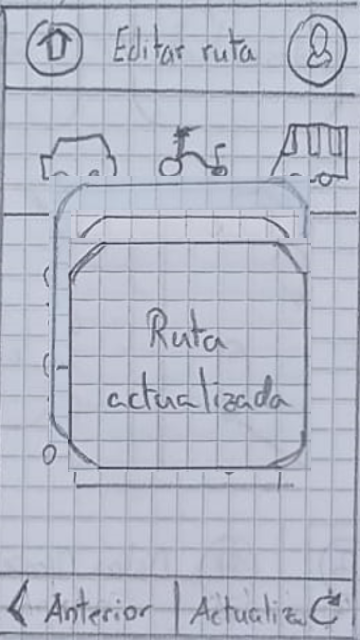 Editar ruta
Ruta
actualizada
Anterior
Actualiza